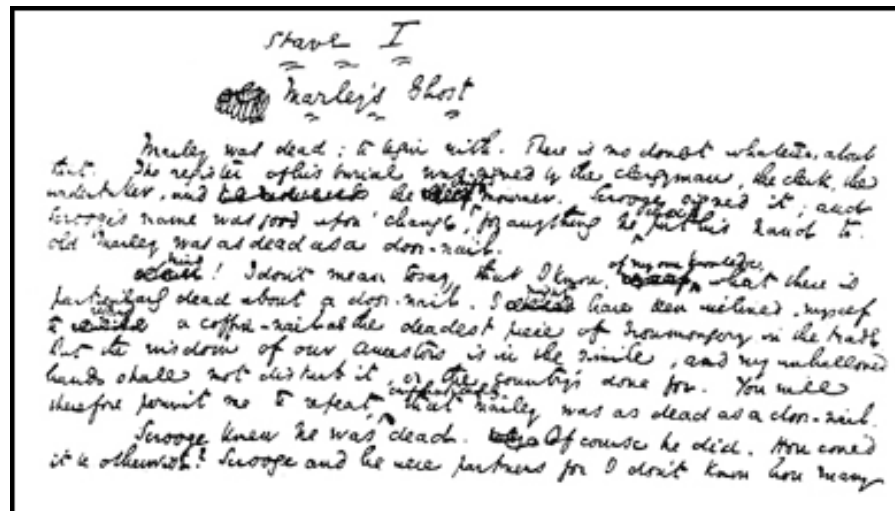 Stave I
Marley's Ghost
Marley was dead; to begin with. There is no doubt whatever, about
that. The register of his burial was signed by the clergyman, the clerk, the
undertaker, and the chief mourner. Scrooge signed it; and
Scrooge's name was good upon 'Change, for anything he chose to put his hand to.
old Marley was as dead as a door-nail.
Mind! I don't mean to say, that I know, of my own knowledge, what there is
particularly dead about a door-nail. I might have been inclined, myself
to regard a coffin-nail as the deadest piece of Ironmongery in the trade
But the wisdom of our Ancestors is in the simile, and my unhallowed
hands shall not disturb it, or the Country's done for. You will
therefore permit me to repeat, emphatically, that Marley was as dead as a door-nail.
Scrooge knew he was dead. Of course he did. How could
it be otherwise? Scrooge and he were partners for I don't know how many